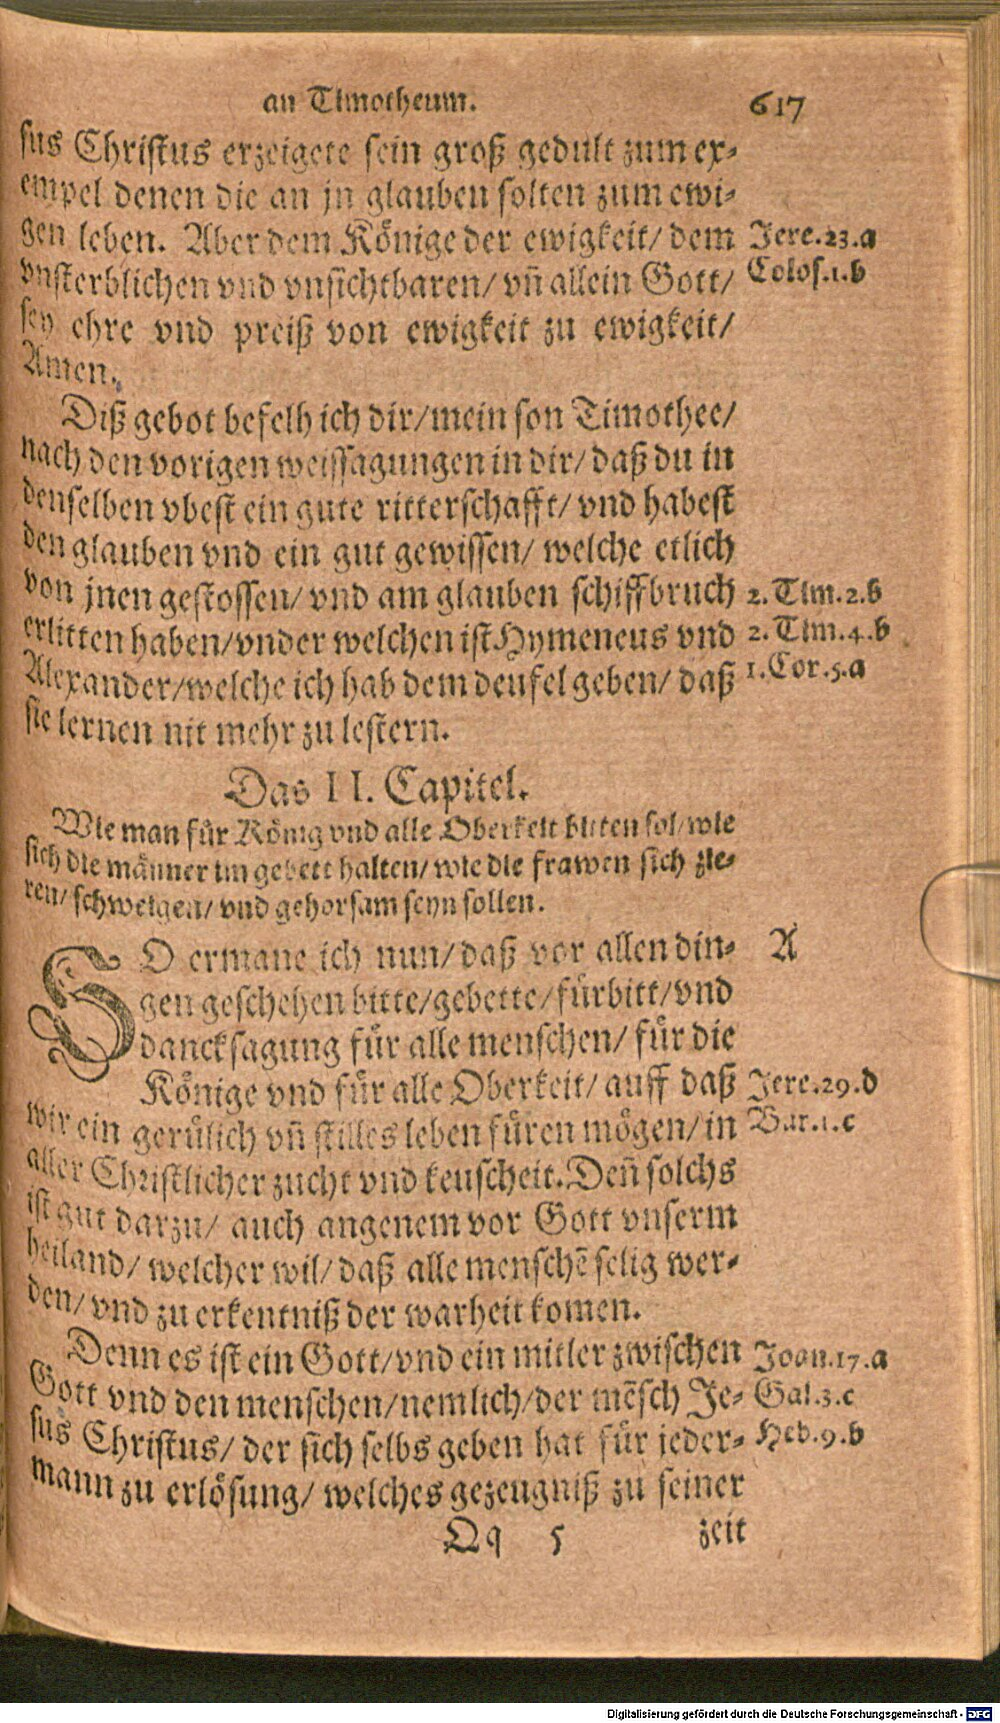 an Timotheum. 617
sus Christus erzeigete sein groß gedult zum ex-
empel denen die an jn glauben solten zum ewi-
gen leben. Aber dem Könige der ewigkeit/ dem
Jere.23.a
vnsterblichen vnd vnsichtbaren/ vñ allein Gott/
Colos.1.b
sey ehre vnd preiß von ewigkeit zu ewigkeit/
Amen.
Diß gebot befelh ich dir/ mein son Timothee/
nach den vorigen weissagungen in dir/ daß du in
denselben vbest ein gute ritterschafft/ vnd habest
den glauben vnd ein gut gewissen/ welche etlich
von jnen gestossen/ vnd am glauben schiffbruch
2.Tim.2.b
erlitten haben/ vnder welchen ist Hymeneus vnd
2.Tim.4.b
Alexander/ welche ich hab dem deufel geben/ daß
1.Cor.5.a
sie lernen nit mehr zu lestern.
Das II. Capitel.
Wie man für König vnd alle Oberkeit bitten sol/ wie
sich die männer im gebett halten/ wie die frawen sich zie-
ren/ schweigen/ vnd gehorsam seyn sollen.
SO ermane ich nun/ daß vor allen din-
A
gen geschehen bitte/ gebette/ fürbitt/ vnd
dancksagung für alle menschen/ für die
Könige vnd für alle Oberkeit/ auff daß
Jere.29.d
wir ein gerůlich vñ stilles leben füren mögen/ in
Bar.1.c
aller Christlicher zucht vnd keuscheit. Deñ solchs
ist gut darzu/ auch angenem vor Gott vnserm
heiland/ welcher wil/ daß alle menschẽ selig wer-
den/ vnd zu erkentniß der warheit komen.
Denn es ist ein Gott/ vnd ein mitler zwischen
Joan.17.a
Gott vnd den menschen/ nemlich/ der mẽsch Je-
Gal.3.c
sus Christus/ der sich selbs geben hat für jeder-
Heb.9.b
mann zu erlösung/ welches gezeugniß zu seiner
Qq 5 zeit
Digitalisierung gefördert durch die Deutsche Forschungsgemeinschaft - DFG